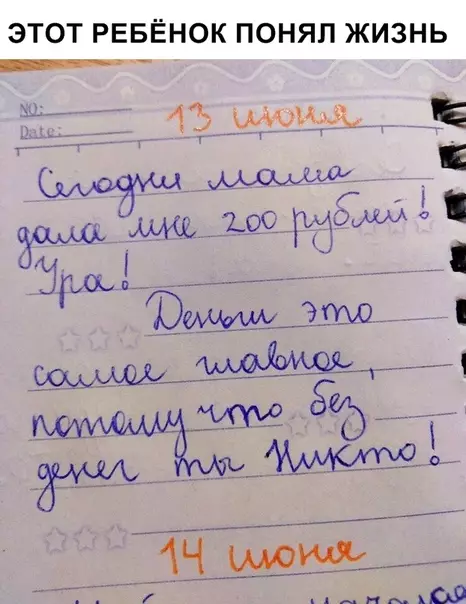 ЭТОТ РЕБЁНОК ПОНЯЛ ЖИЗНЬ
NO:
13 июня
Date:
Сегодня мама
дала мне 200 рублей!
Ура!
Деньги это
самое главное,
потому что без
денег ты Никто!
14 июня